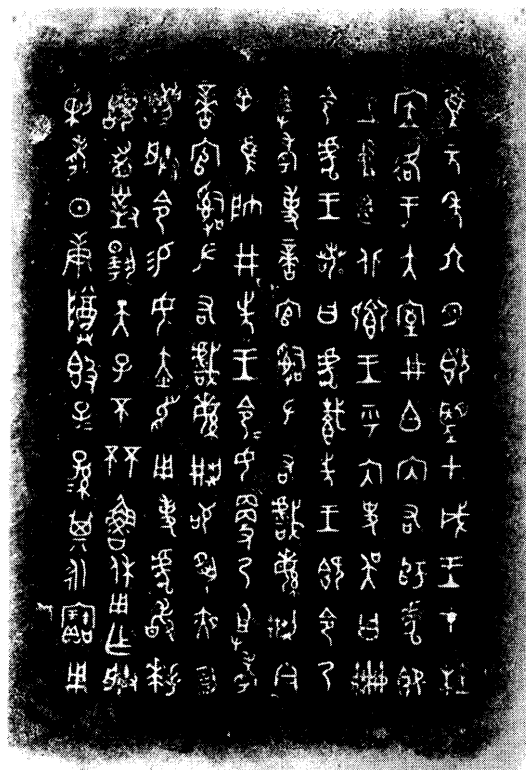 隹元年六月既望甲戌王才杜
𡨥各于大室井白內右師虎即
立中廷北鄉王乎內史吳曰冊
令虎王若曰虎載先王既令乃
且考事啻官𤔲左右戲繁荊今
余隹帥井先王令=女更乃且考
啻官𤔲左右戲繁荊敬夙夜勿
灋朕令易女赤舄用事虎敢拜
𩒨首對揚天子不𣏂魯休用乍朕
剌考日庚尊簋子=孫=其永寶用